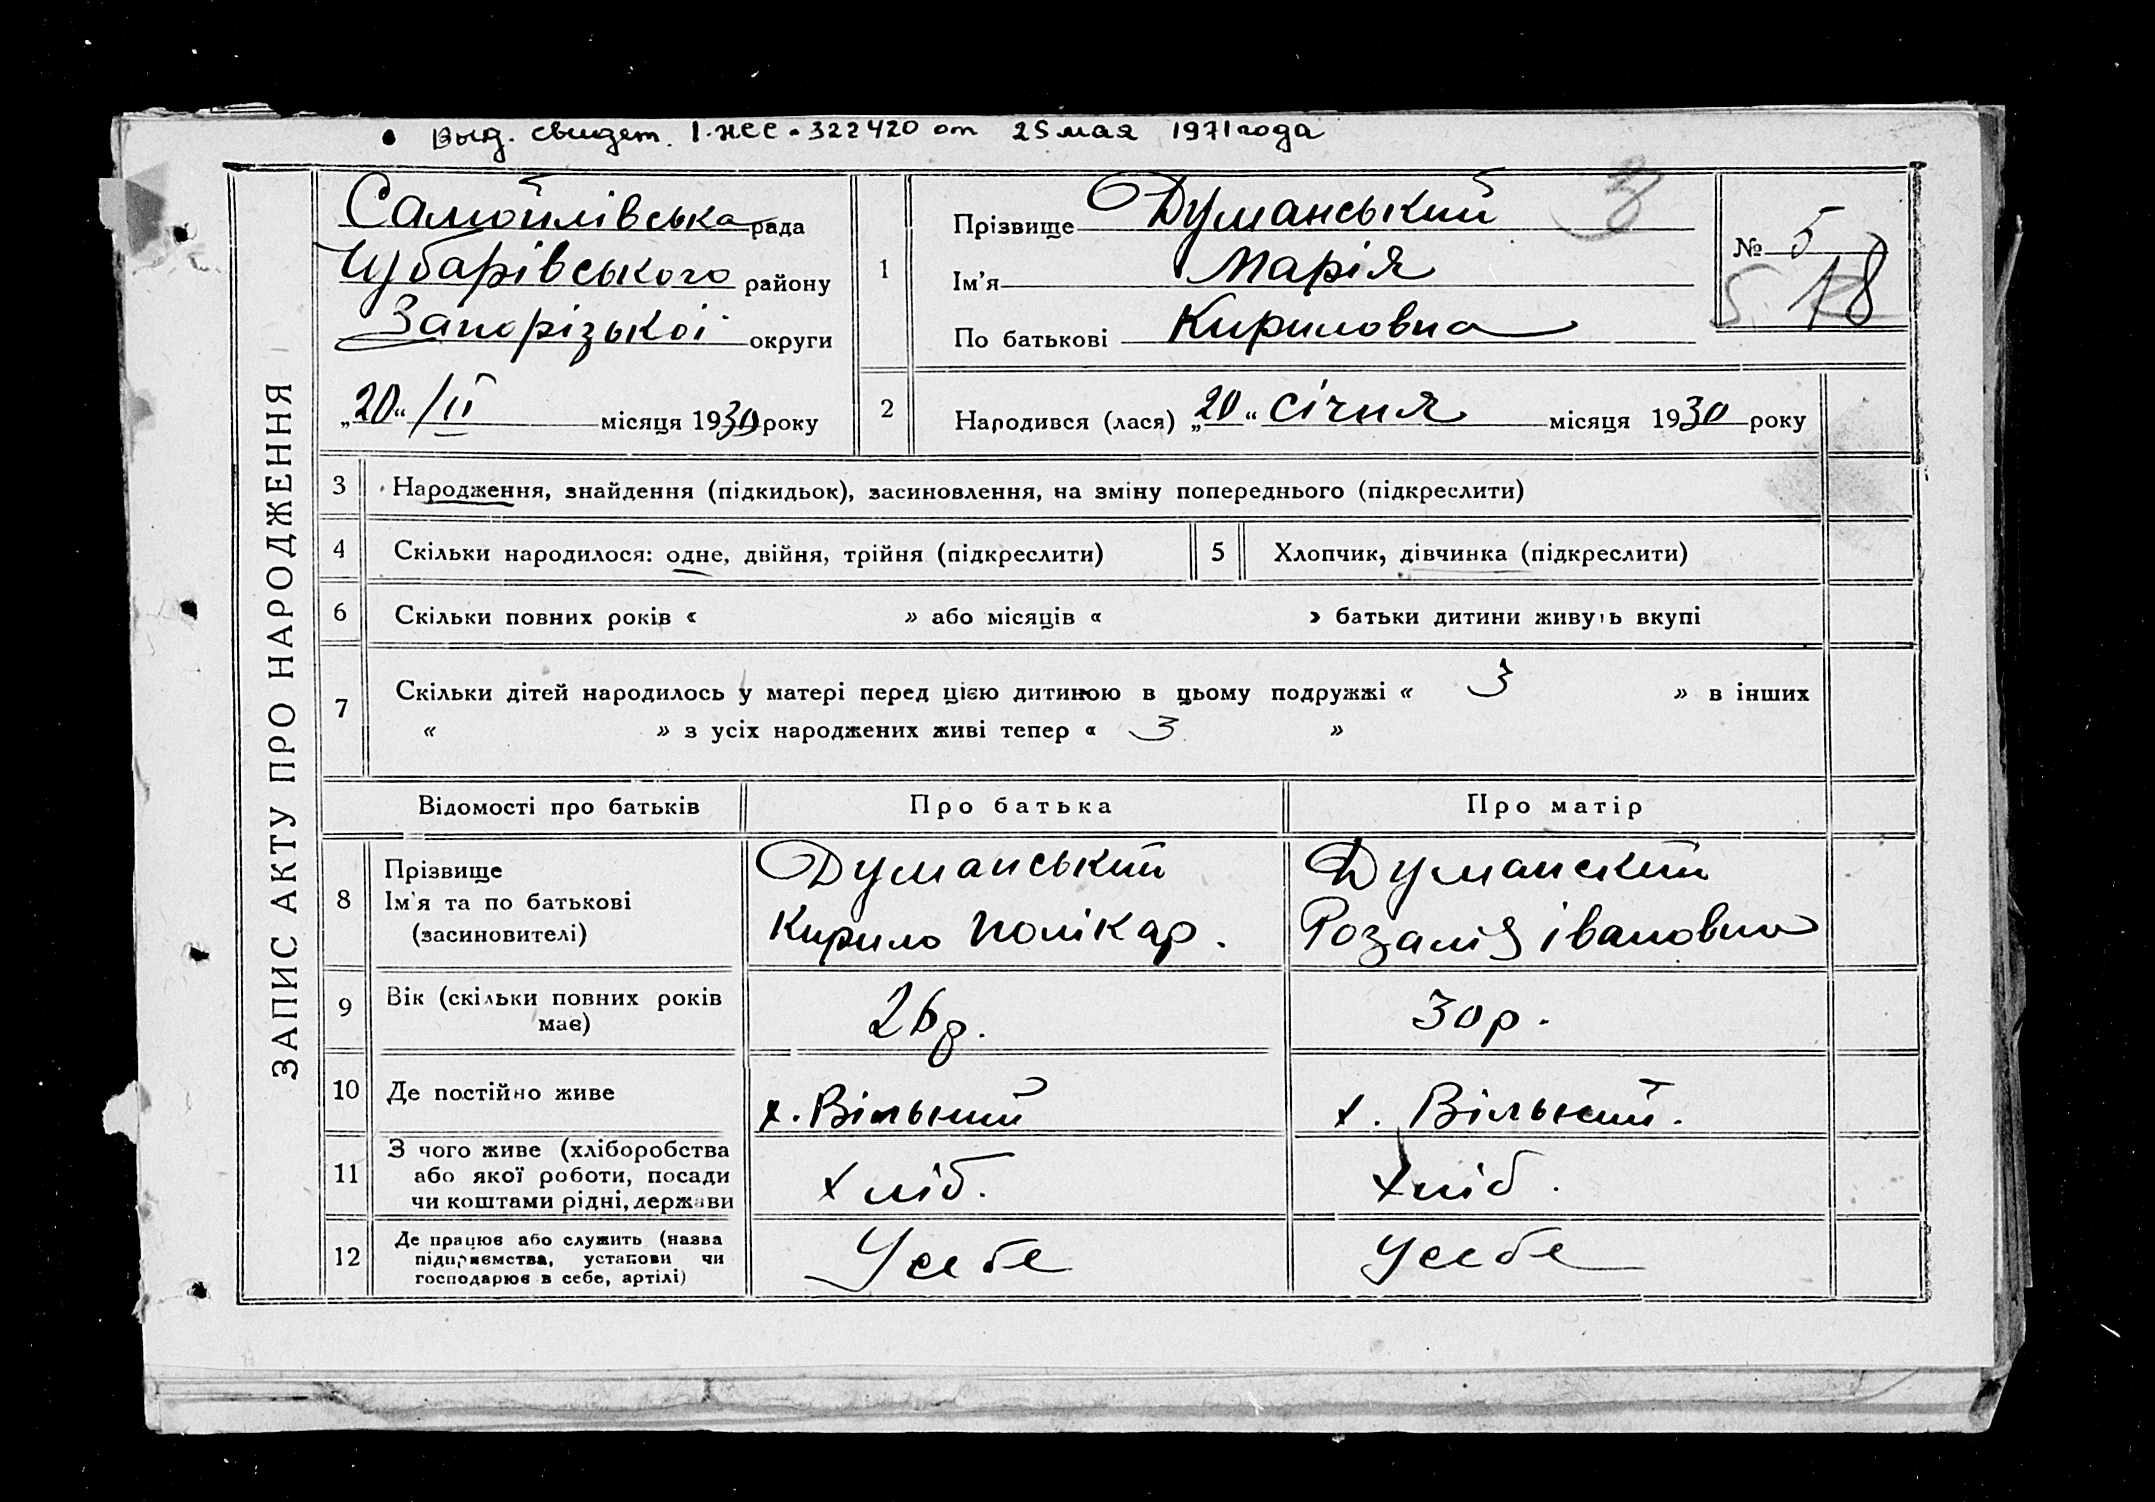 Выд. свидет. І-ЖСС-322420 от 25 мая 1971 года
ЗАПИС АКТУ ПРО НАРОДЖЕННЯ
Самойлівська рада
Чубарівського району
Запорізької округи
„20“ /II місяця 1930 року
1
Прізвище Думанський
Ім'я Марія
По батькові Кириловна
3
№ 5
18
2
Народився (лася) „20“ січня місяця 1930 року
3 Народження, знайдення (підкидьок), засиновлення, на зміну попереднього (підкреслити)
4 Скільки народилося: одне, двійня, трійня (підкреслити)
5 Хлопчик, дівчинка (підкреслити)
6 Скільки повних років « » або місяців « » батьки дитини живуть вкупі
7 Скільки дітей народилось у матері перед цією дитиною в цьому подружжі « 3 » в інших
« » з усіх народжених живі тепер « 3 »
Відомості про батьків Про батька Про матір
8
Прізвище
Ім'я та по батькові
(засиновителі)
Думанський
Кирило Полікар.
Думанский
Розалія івановна
9
Вік (скільки повних років
має)
26 р.
30 р.
10 Де постійно живе
х. Вільний
х. Вільний.
11
З чого живе (хліборобства
або якої роботи, посади
чи коштами рідні, держави
хліб.
хліб.
12
Де працює або служить (назва
підприємства, установи чи
господарює в себе, артілі)
У себе
У себе